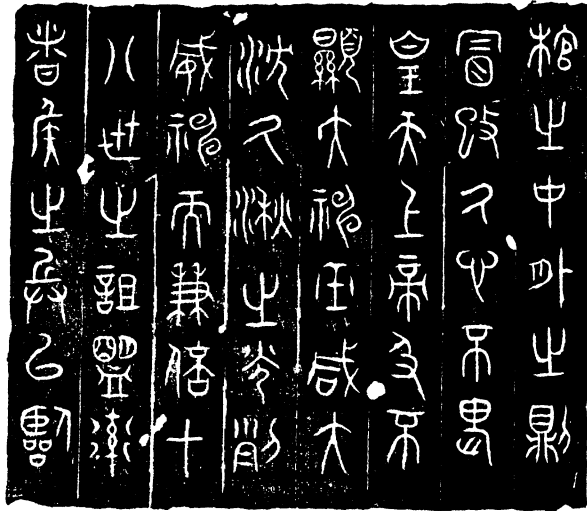 棺之中外之則
冒改久心不畏
皇天上帝及不
顯大神巫咸大
沈久湫之光列
威神而兼倍十
八世之詛盟率
者侯之兵以臨